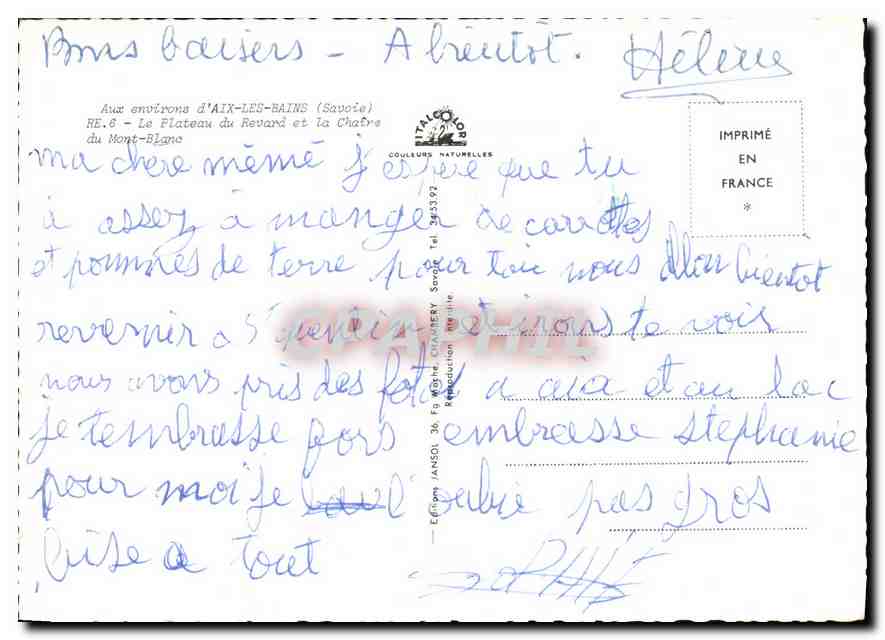 Bons baisers - A bientôt. Hélène
Aux environs d'AIX-LES-BAINS (Savoie)
RE.6 - Le Plateau du Revard et la Chaîne
du Mont-Blanc
ITALCOLOR
COULEURS NATURELLES
IMPRIMÉ
EN
FRANCE
*
ma chere mémé j'espère que tu
à assez à manger de carottes
et pommes de terre pour toi nous allon bientot
revenir a St quentin et irons te voir
nous avons pris des fotos a aix et au lac
je tembrasse fors embrasse stephanie
pour moi je l'oublie pas gros
bise a tout
SOPHIE
— Editions JANSOL 36, Fg Mâché, CHAMBERY Savoie Tel. 34.53.92
Reproduction interdite.
CPAPHIL